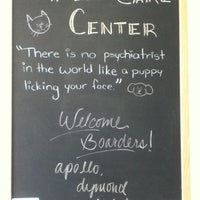 Center
"There is no psychiatrist
in the world like a puppy
licking your face."
Welcome
Boarders!
apollo,
dymond